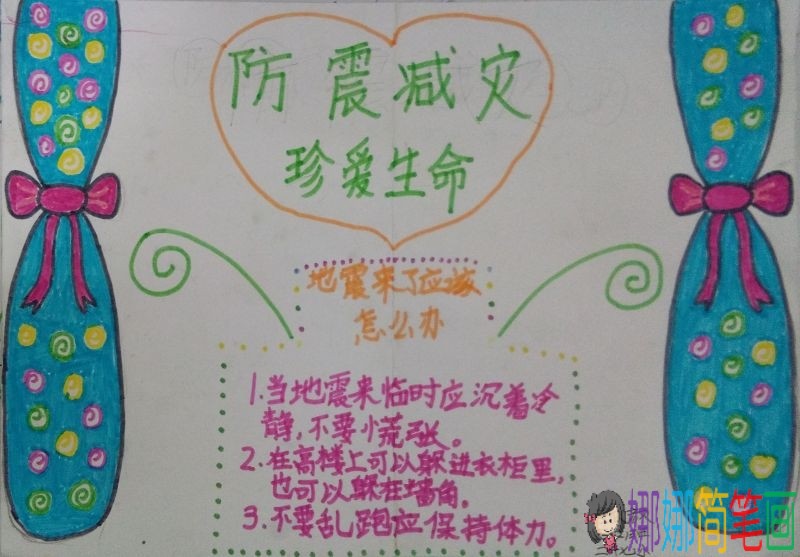 防震减灾
珍爱生命
地震来了应该
怎么办
1.当地震来临时应沉着冷
静,不要慌张。
2.在高楼上可以躲进衣柜里,
也可以躲在墙角。
3.不要乱跑应保持体力。
娜娜简笔画